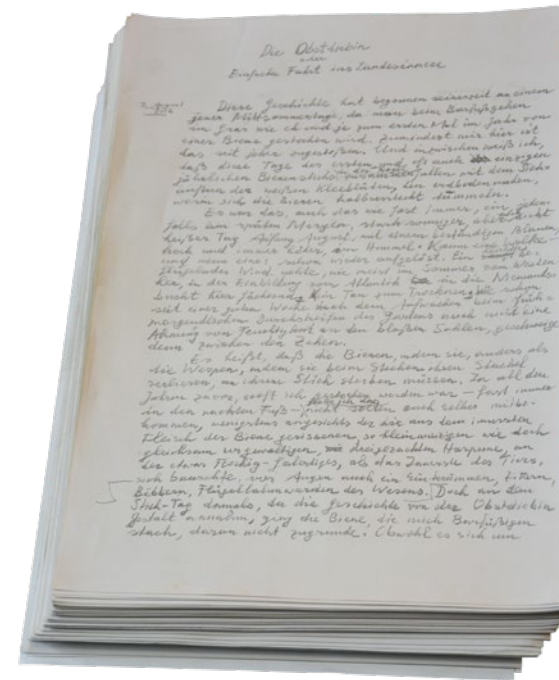 Die Obstdiebin
oder
Einfache Fahrt ins Landesinnere
Diese Geschichte hat begonnen seinerzeit an einem
jener Mittsommertage, da man beim Barfußgehen
im Gras wie eh und je zum ersten Mal im Jahr von
einer Biene gestochen wird. Zumindest mir hier ist
das seit jeher zugestoßen. Und inzwischen weiß ich,
daß diese Tage des ersten und oft auch einzigen
jährlichen Bienenstichs in der Regel zusammenfallen mit dem Sich-
öffnen der weißen Kleeblüten, den erdbodennahen,
worin sich die Bienen halbversteckt tummeln.
Es war das, auch das wie fast immer, ein, jeden-
falls am späten Morgen, noch nicht
heißer Tag Anfang August, mit einem beständigen Blauen,
hoch und immer höher, am Himmel. Kaum eine Wolke
und wenn eine: schon wieder aufgelöst. Ein
Wind wehte, wie meist im Sommer vom Westen
her, in der Einbildung vom Atlantik in die Niemands-
bucht hier fächelnd. Kein Tau zum Trocknen. Wie schon
seit einer guten Woche auch beim früh-
morgendlichen Durchstreifen des Gartens auch nicht eine
Ahnung von Feuchtigkeit an den bloßen Sohlen, geschweige
denn zwischen den Zehen.
Es heißt, daß die Bienen, indem sie, anders als
die Wespen, beim Stechen ihren Stachel
verlieren, an ihrem Stich sterben müssen. In all den
Jahren zuvor, sooft ich gestochen worden war – fast immer
in den nackten Fuß – hatte ich das nicht selten auch selber mitbe-
kommen, wenigstens angesichts der wie aus dem innersten
Fleisch der Biene gerissenen, so kleinwinzigen wie doch
gleichsam urgewaltigen, dreigezackten Harpune, an
der etwas Flockig-Gallertiges, als das Innerste des Tiers,
sich bauschte, vor Augen auch ein Sichkrümmen, Zittern,
Bibbern, Flügellahmwerden des Wesens. Doch an dem
Stich-Tag damals, da die Geschichte von der Obstdiebin
Gestalt annahm, ging die Biene, die mich Barfüßigen
stach, daran nicht zugrunde. Obwohl es sich um